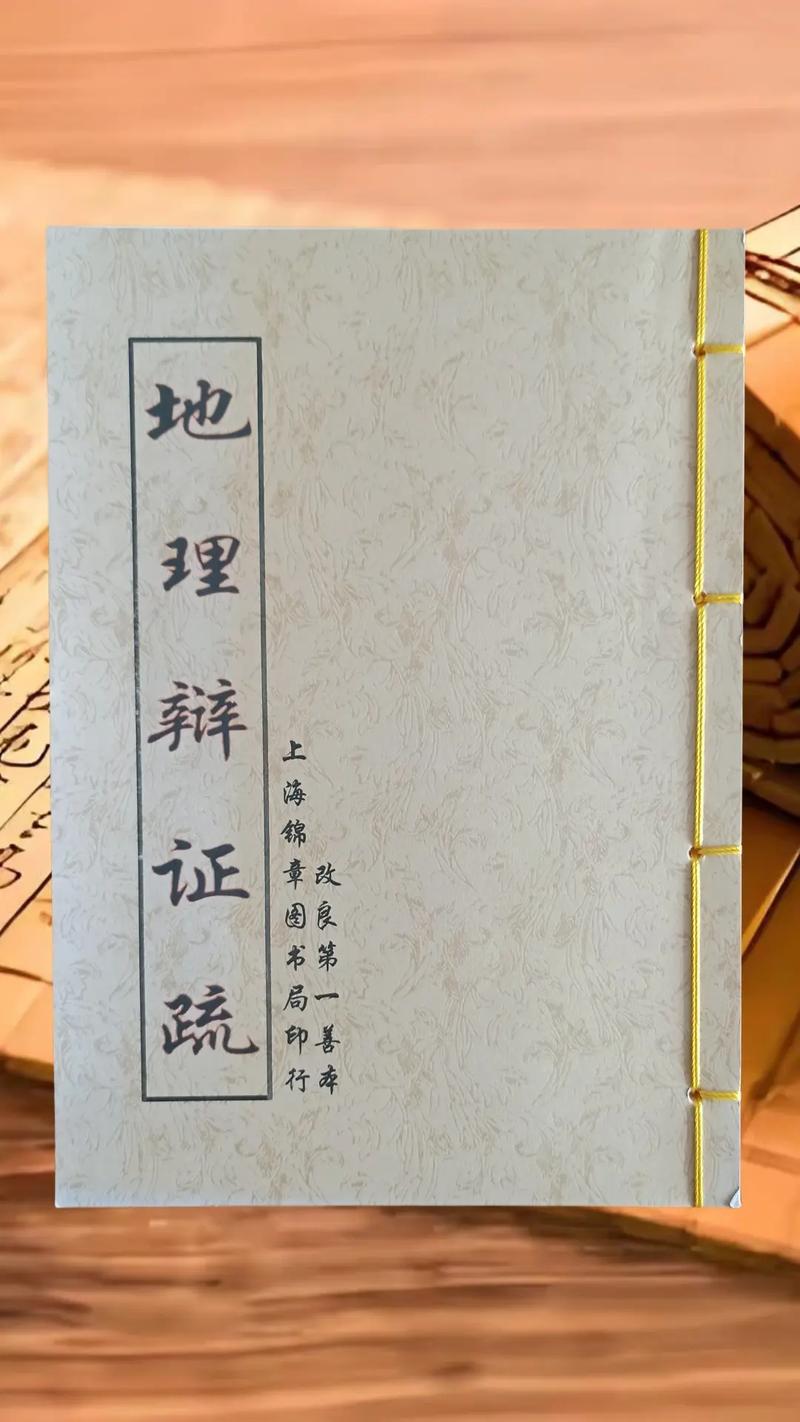 改良第一善本
上海锦章图书局印行
地理辩证疏